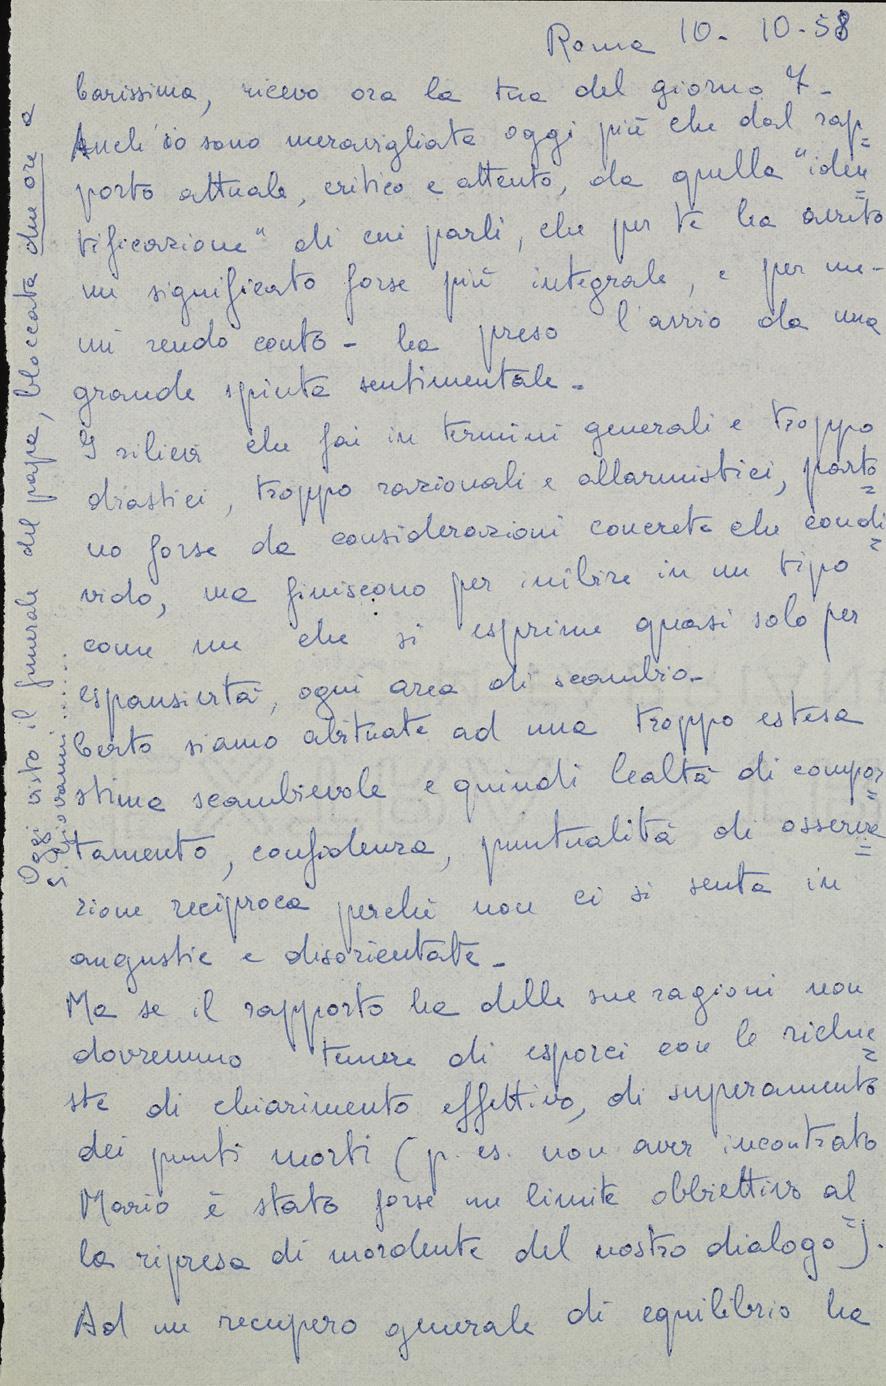 Roma 10-10-58
Carissima, ricevo ora la tua del giorno 7-
Anch'io sono meravigliata oggi più che dal rap=
porto attuale, critico e attento, da quella "iden
tificazione" di cui parli, che per te ha avuto
un significato forse più integrale, e per me-
mi rendo conto - ha preso l'avvio da una
grande spinta sentimentale-
I rilievi che fai in termini generali e troppo
drastici, troppo razionali e allarmistici, parto=
no forse da considerazioni concrete che condi=
vido, ma finiscono per inibire in un tipo
come me che si esprime quasi solo per
espansività, ogni area di scambio-
Certo siamo abituate ad una troppo estesa
stima scambievole e quindi lealtà di compor=
tamento, confidenza, puntualità di osserva=
zione reciproca perché non ci si senta in
angustie e disorientate-
Ma se il rapporto ha delle sue ragioni non
dovremmo temere di esporci con le richie=
ste di chiarimento effettivo, di superamento
dei punti morti (p. es. non aver incontrato
Mario è stato forse un limite obbiettivo al=
la ripresa di mordente del nostro dialogo").
Ad un recupero generale di equilibrio ha
Oggi visto il funerale del papa, bloccata due ore a
S. Giovanni......